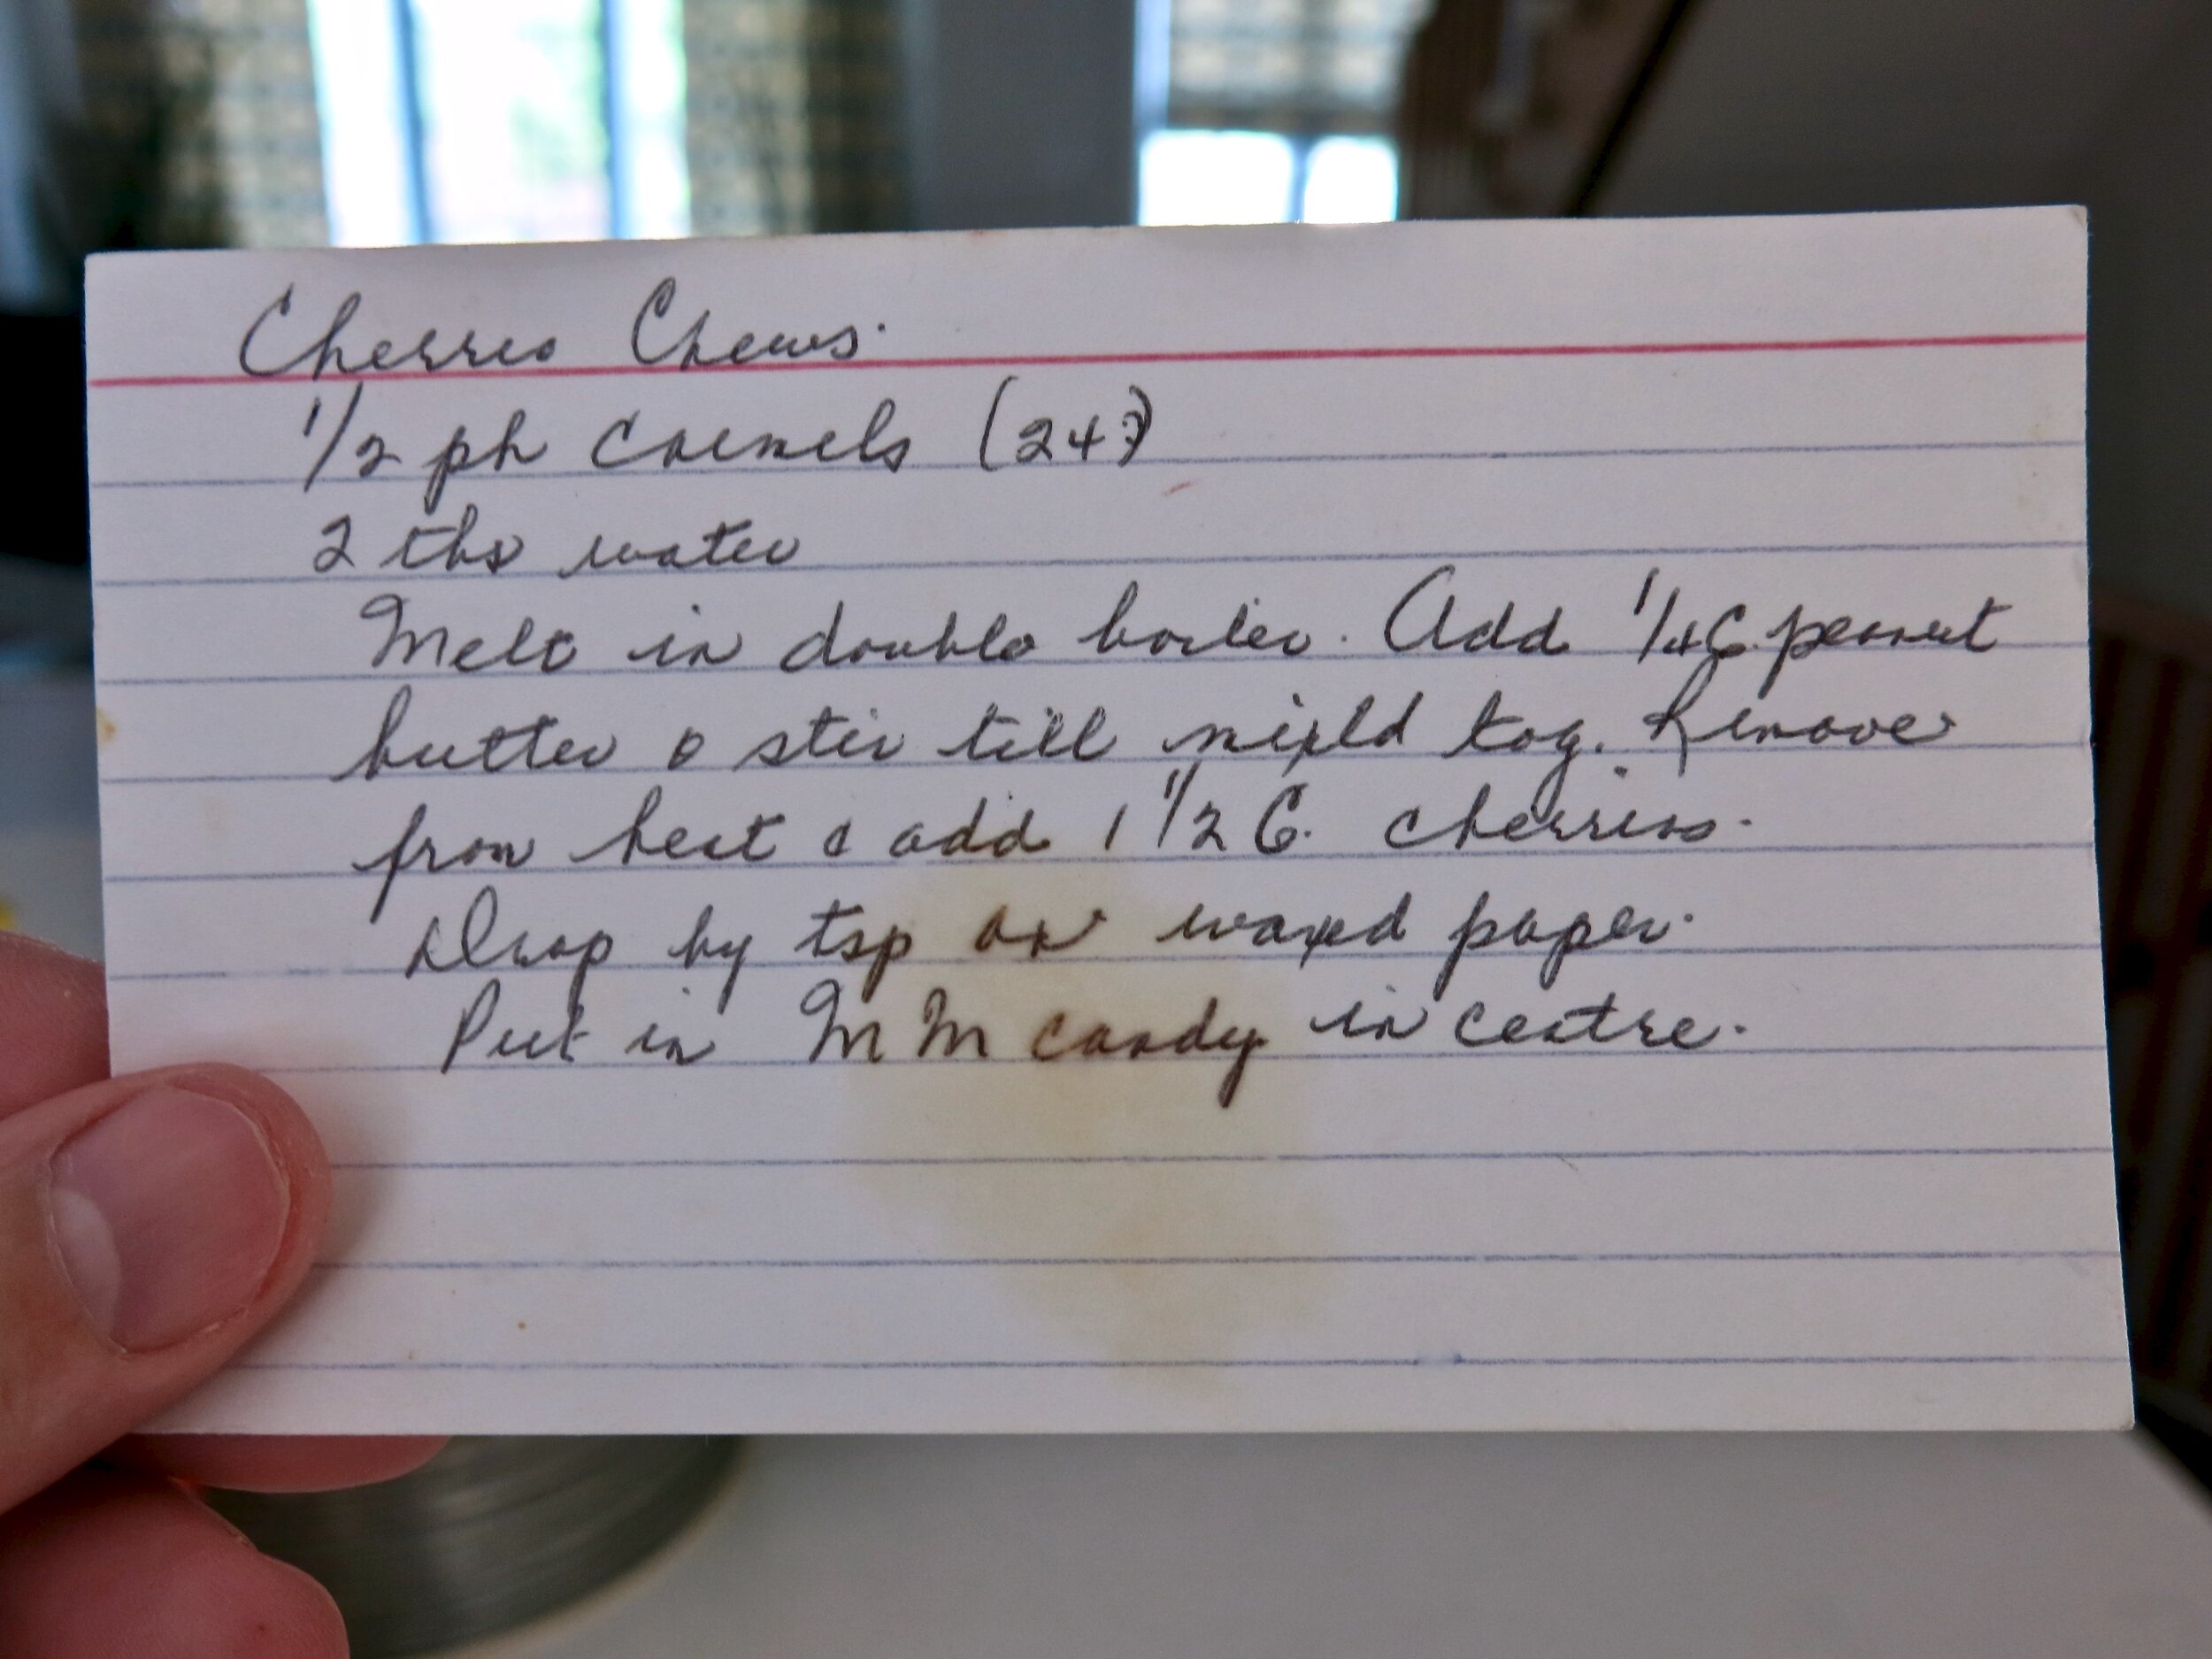 Cherrio Chews.
1/2 pk carmels (24?)
2 tbs water
Melt in double boiler. Add 1/4 C. peanut
butter & stir till mixed tog. Remove
from heat & add 1 1/2 C. cherrios.
Drop by tsp on waxed paper.
Put in M M candy in centre.